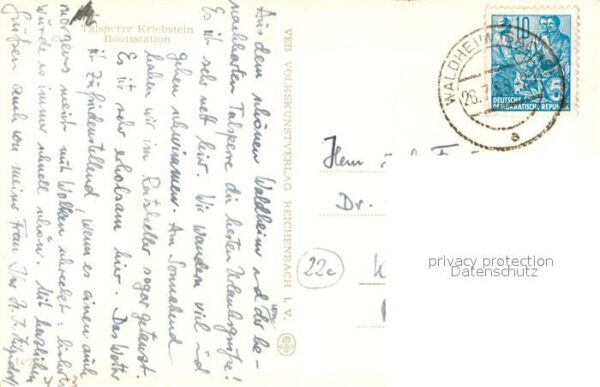 Talsperre Kriebstein
Bootsstation
Aus dem schönen Waldheim und der be-
nachbarten Talsperre die besten Urlaubsgrüße!
Es ist sehr nett hier. Wir wandern viel und
gehen schwimmen. Am Sonnabend
haben wir im Ratskeller sogar getanzt.
Es ist sehr erholsam hier. Das Wetter
ist zufriedenstellend, wenn es einen auch
morgens meist mit Wolken schreckt; bisher
wurde es immer schnell schön. Mit herzlichen
Grüßen auch von meiner Frau Ihr
VEB VOLKSKUNSTVERLAG REICHENBACH I. V.
10
DEUTSCHE
DEMOKRATISCHE REPUBLIK
5
WALDHEIM
26.7.
a
Herrn
Dr.
22c
privacy protection
Datenschutz